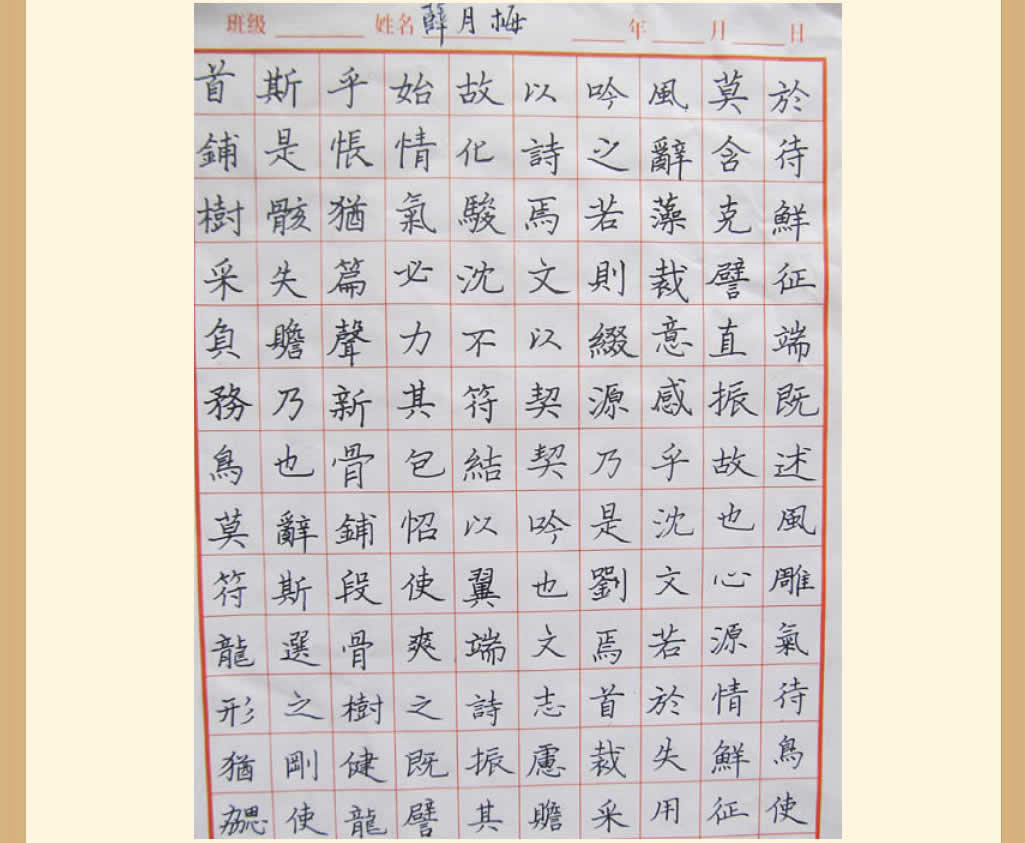 班級 姓名 薛月梅 年 月 日
首斯乎始故以吟風莫於
鋪是悵情化詩之辭含待
樹骸猶氣駿焉若藻克鮮
采失篇必沈文則裁譬征
負贍聲力不以綴意直端
務乃新其符契源感振既
鳥也骨包結契乃乎故述
莫辭鋪怊以吟是沈也風
符斯段使翼也劉文心雕
龍選骨爽端文焉若源氣
形之樹之詩志首於情待
猶剛健既振慮裁失鮮鳥
勰使龍譬其贍采用征使